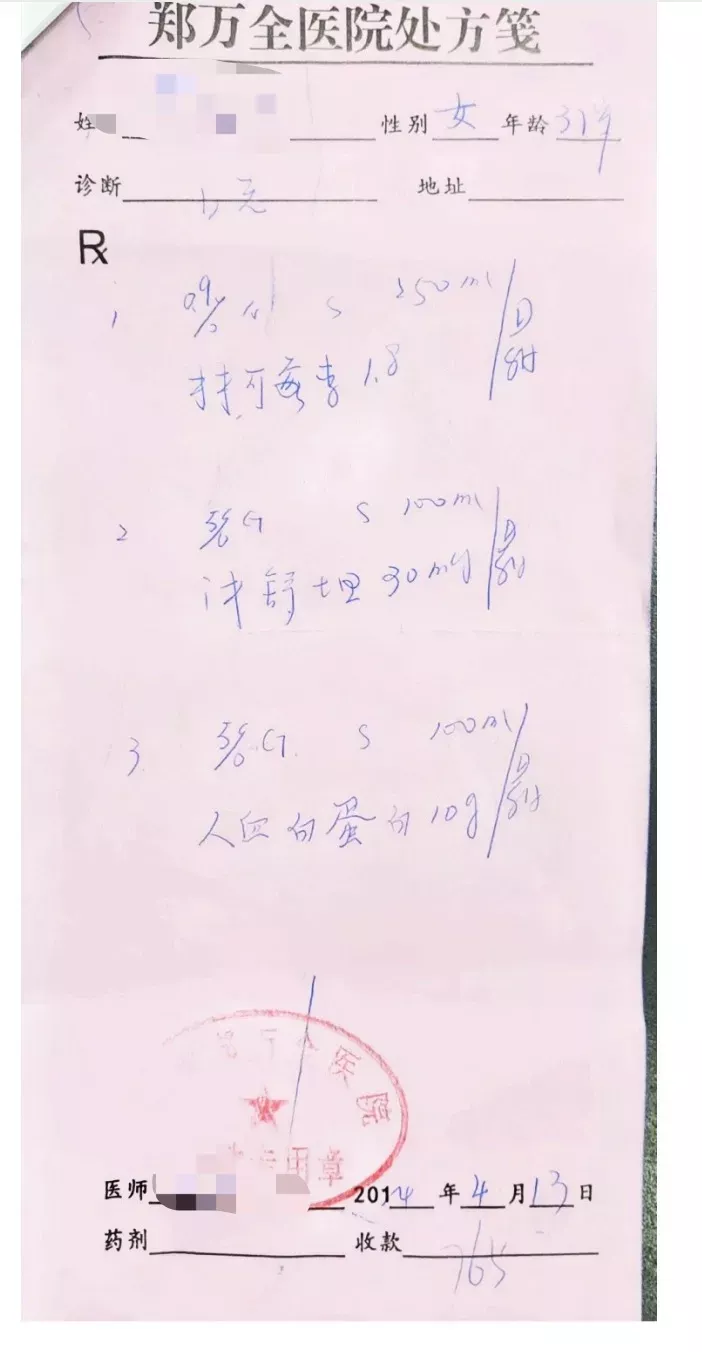 郑万全医院处方笺
姓 性别 女 年龄 31岁
诊断 地址
Rx
1 0.9% S 250ml
林可霉素 1.8
2 5%G S 100ml
沐舒坦 30mg
3. 5%G. S 100ml
人血白蛋白 10g
万全医院
专用章
医师 2014 年 4 月 13 日
药剂 收款 765